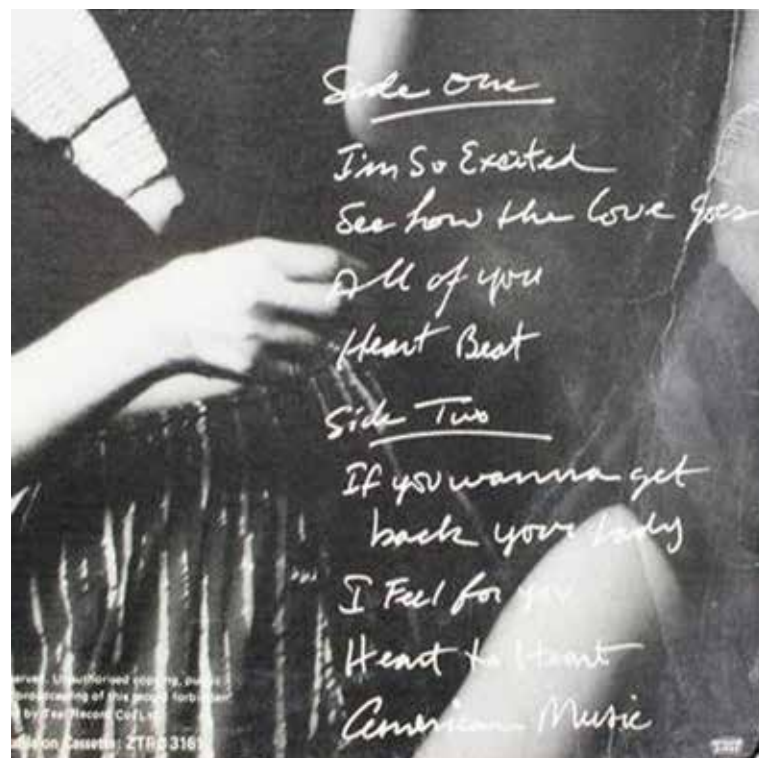 Side One
I'm So Excited
See how the love goes
All of you
Heart Beat
Side Two
If you wanna get
back your lady
I Feel for you
Heart to Heart
American Music
erved. Unauthorised copying, public
broadcasting of this record forbidden
by Teal Record Co.
on Cassette: ZTRC 3161